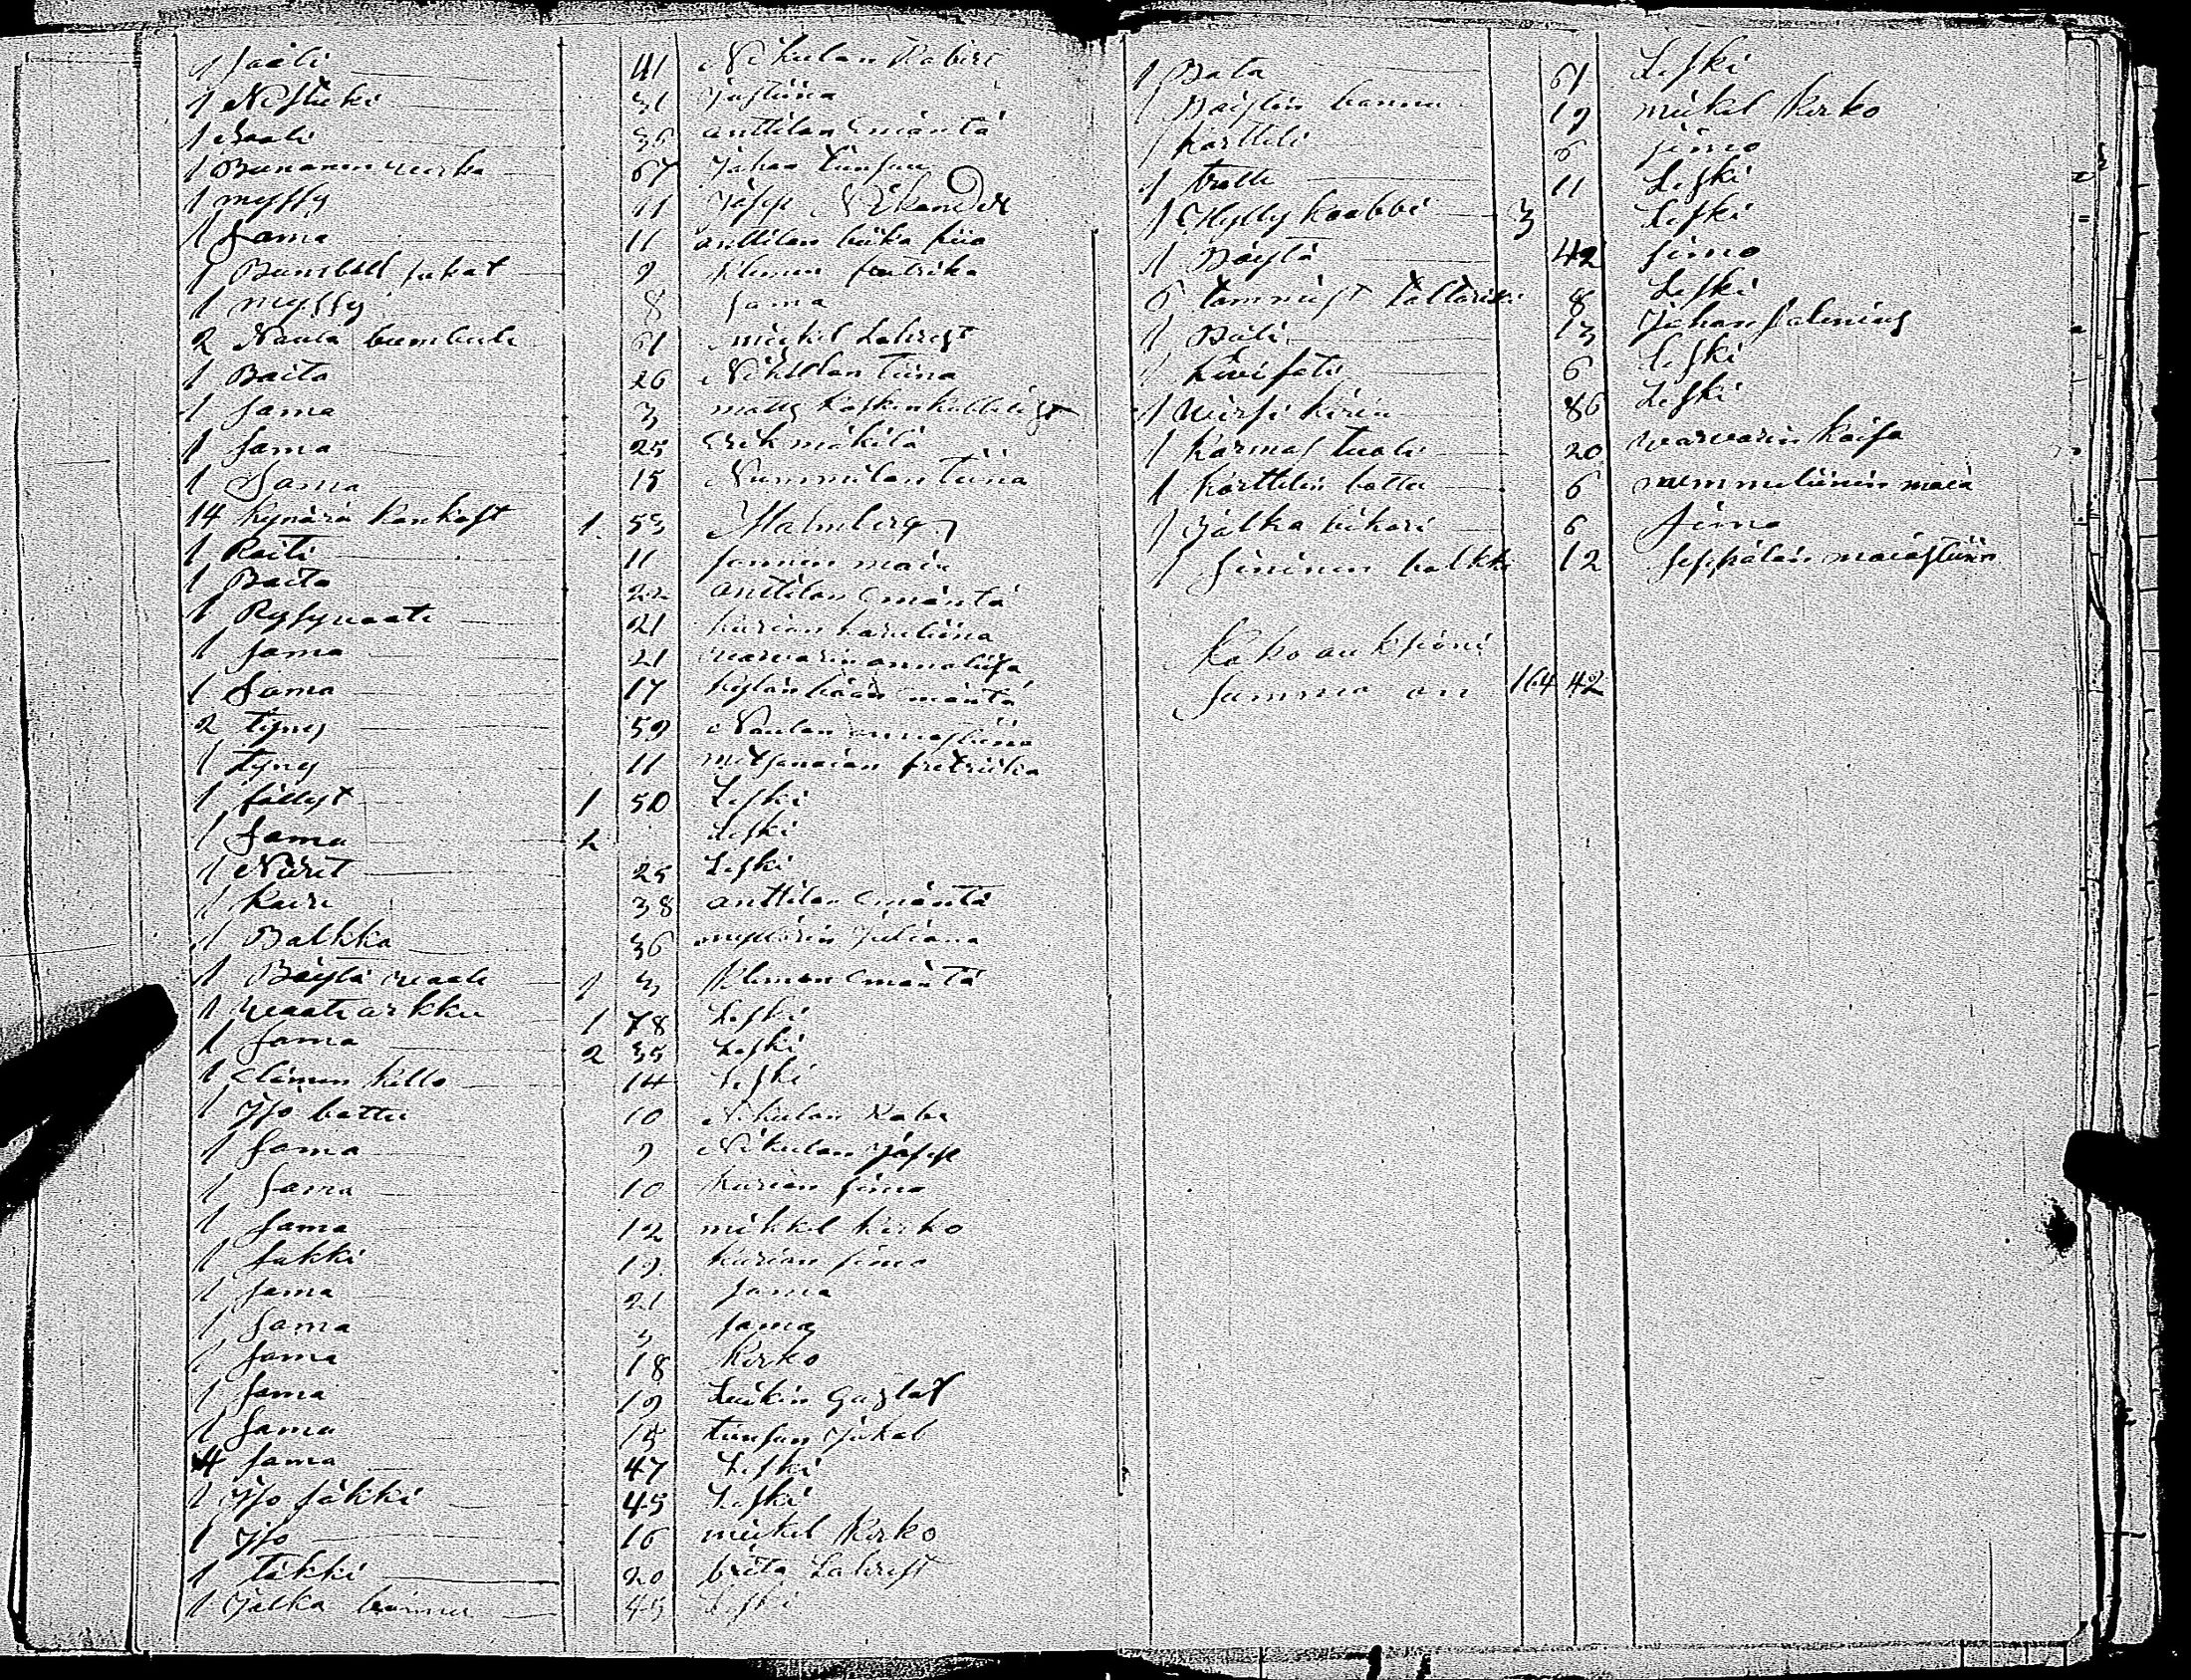 1 Saali 41 Nikulan Kabirt
1 Nistuki 31 Justiina
1 Saali 36 anttilan Emäntä
1 Bumanin verka 67 Juhan tiinsun
1 myssy 11 Josep Nikander
1 Sama 11 anttilan biika fiia
1 Bumbull sukat 9 Klemun fretrika
1 myssy 8 Sama
2 Naula bumbuli 61 miekel Lahrest
1 Baita 26 Nikullan tiina
1 Sama 3 matts
1 Sama 25 Erik mäkilä
1 Sama 15 Nummilan tiina
14 kynärä Kankast 1. 53 Malmberg
1 Raiti 11 Jannun maia
1 Baita 22 anttilan Emäntä
1 Rysyvaate 21 kurian karuliina
1 Sama 21 warvarin annaliisa
1 Sama 17 Emäntä
2 tyny 59 Naulan annastiina
1 tyny 11 mitsanaian fretriika
1 fällyt 1 50 Leski
1 Sama 2 Leski
1 Niirit 25 Leski
1 Kairi 38 anttilan Emäntä
1 Balkka 36 myllärin Juliana
1 Böytä vaate 1 3 Klemun Emäntä
1 vaate arkku 1 78 Leski
1 Sama 2 35 Leski
1 Clämen Kello 14 Leski
1 Jso battu 10 Nikulan Kabe
1 Sama 9 Nikulan Josep
1 Sama 10 kurian simo
1 Sama 12 mikkel Kerko
1 Sakki 19 kurian simo
1 Sama 21 Sama
1 Sama 3 Sama
1 Sama 18 Kerko
1 Sama 19 Luikin Gustaf
1 Sama 15 tiinsun Jakab
4 Sama 47 Leski
1 Jso Säkki 45 Leski
1 Jso 16 miekel Kerko
1 täkki 20 brita Lahrest
1 Jalka 45 Leski
1 Bata 61 Leski
1 Baistin bannu 19 miekel Kerko
1 Kortteli 6 simo
1 tratti 11 Leski
1 Hylly kaabbi 3 Leski
1 Böytä 42 simo
6 tammist taltariki 8 Leski
1 Büli 13 Johan Salenius
1 Kivifati 6 Leski
1 wirsi kiria 86 Leski
1 Karmas tuoli 20 warvarin kaisa
1 korttelin battu 6 nummeliinin maia
1 Jalka bikari 6 simo
1 Sininen balkki 12 Seppälän maiastiina
Koko auksioni
Summa on 164 42